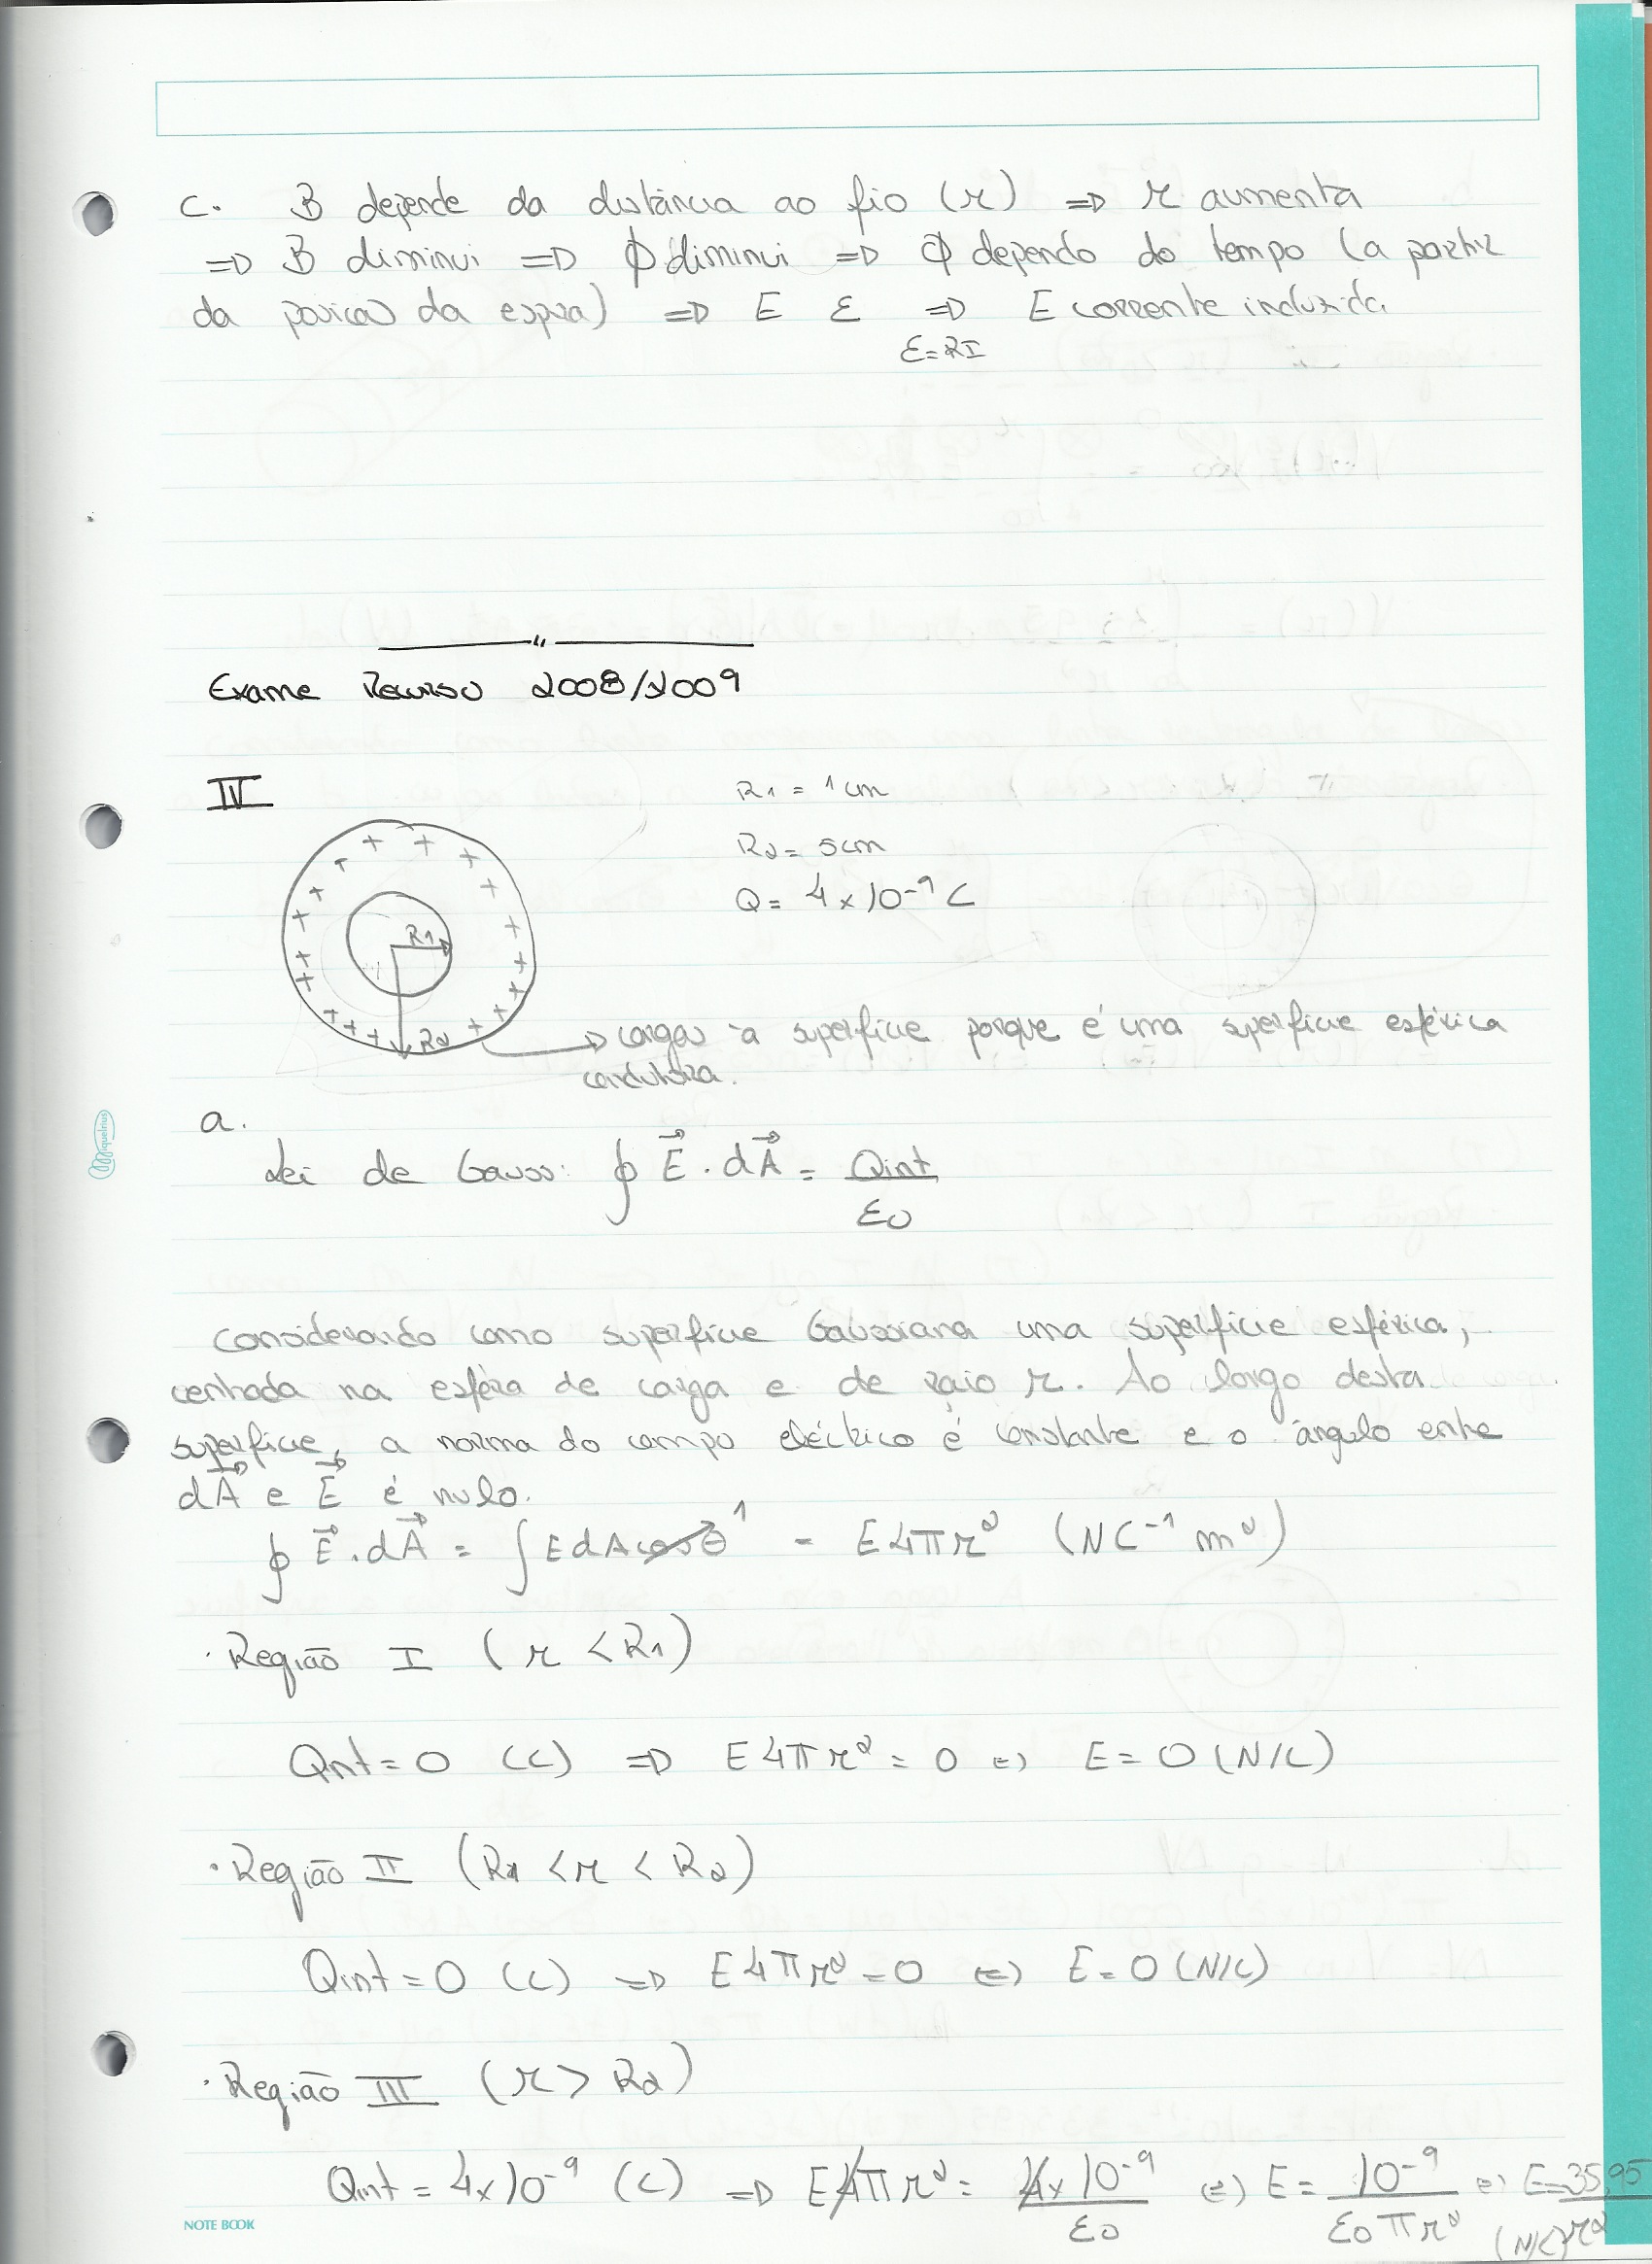 c. B depende da distância ao fio (r) => r aumenta
=> B diminui => ϕ diminui => ϕ depende do tempo (a partir
da posicao da espira) => E ε => E corrente induzida.
ε=RI
Exame Recurso 2008/2009
IV
R1 = 1 cm
R2 = 5cm
Q = 4 x 10⁻⁹ C
R1
R2
=> cargas à superfície porque é uma superfície esférica
condutora.
a.
Lei de Gauss: ∮ E⃗ . dA⃗ = Qint / ε0
Considerando como superfície Gaussiana uma superfície esférica,
centrada na esfera de carga e de raio r. Ao longo desta
superfície, a norma do campo eléctrico é constante e o ângulo entre
dA⃗ e E⃗ é nulo.
∮ E⃗ . dA⃗ = ∫ E dA cos θ 1 = E 4πr² (NC⁻¹ m²)
· Região I (r < R1)
Qint = 0 (C) => E 4πr² = 0 <=> E = 0 (N/C)
· Região II (R1 < r < R2)
Qint = 0 (C) => E 4πr² = 0 <=> E = 0 (N/C)
· Região III (r > R2)
Qint = 4x10⁻⁹ (C) => E 4πr² = 4x10⁻⁹ / ε0 <=> E = 10⁻⁹ / ε0 πr² <=> E = 35,95 / r² (N/C)
miquelrius
NOTE BOOK